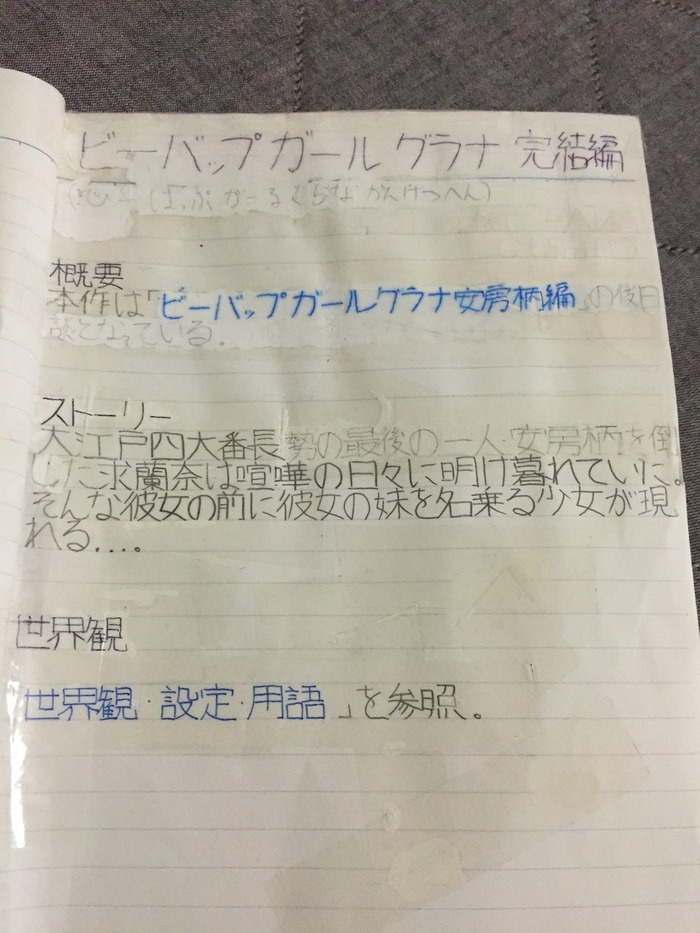 ビーバップガールグラナ 完結編
ばっぷがーるぐらなかんけつへん)
概要
本作は「ビーバップガールグラナ安房柄編」の後日
談となっている.
ストーリー
大江戸四大番長勢の最後の一人・安房柄を倒
した求蘭奈は喧嘩の日々に明け暮れていた。
そんな彼女の前に彼女の妹を名乗る少女が現
れる....。
世界観
世界観・設定・用語 」を参照。